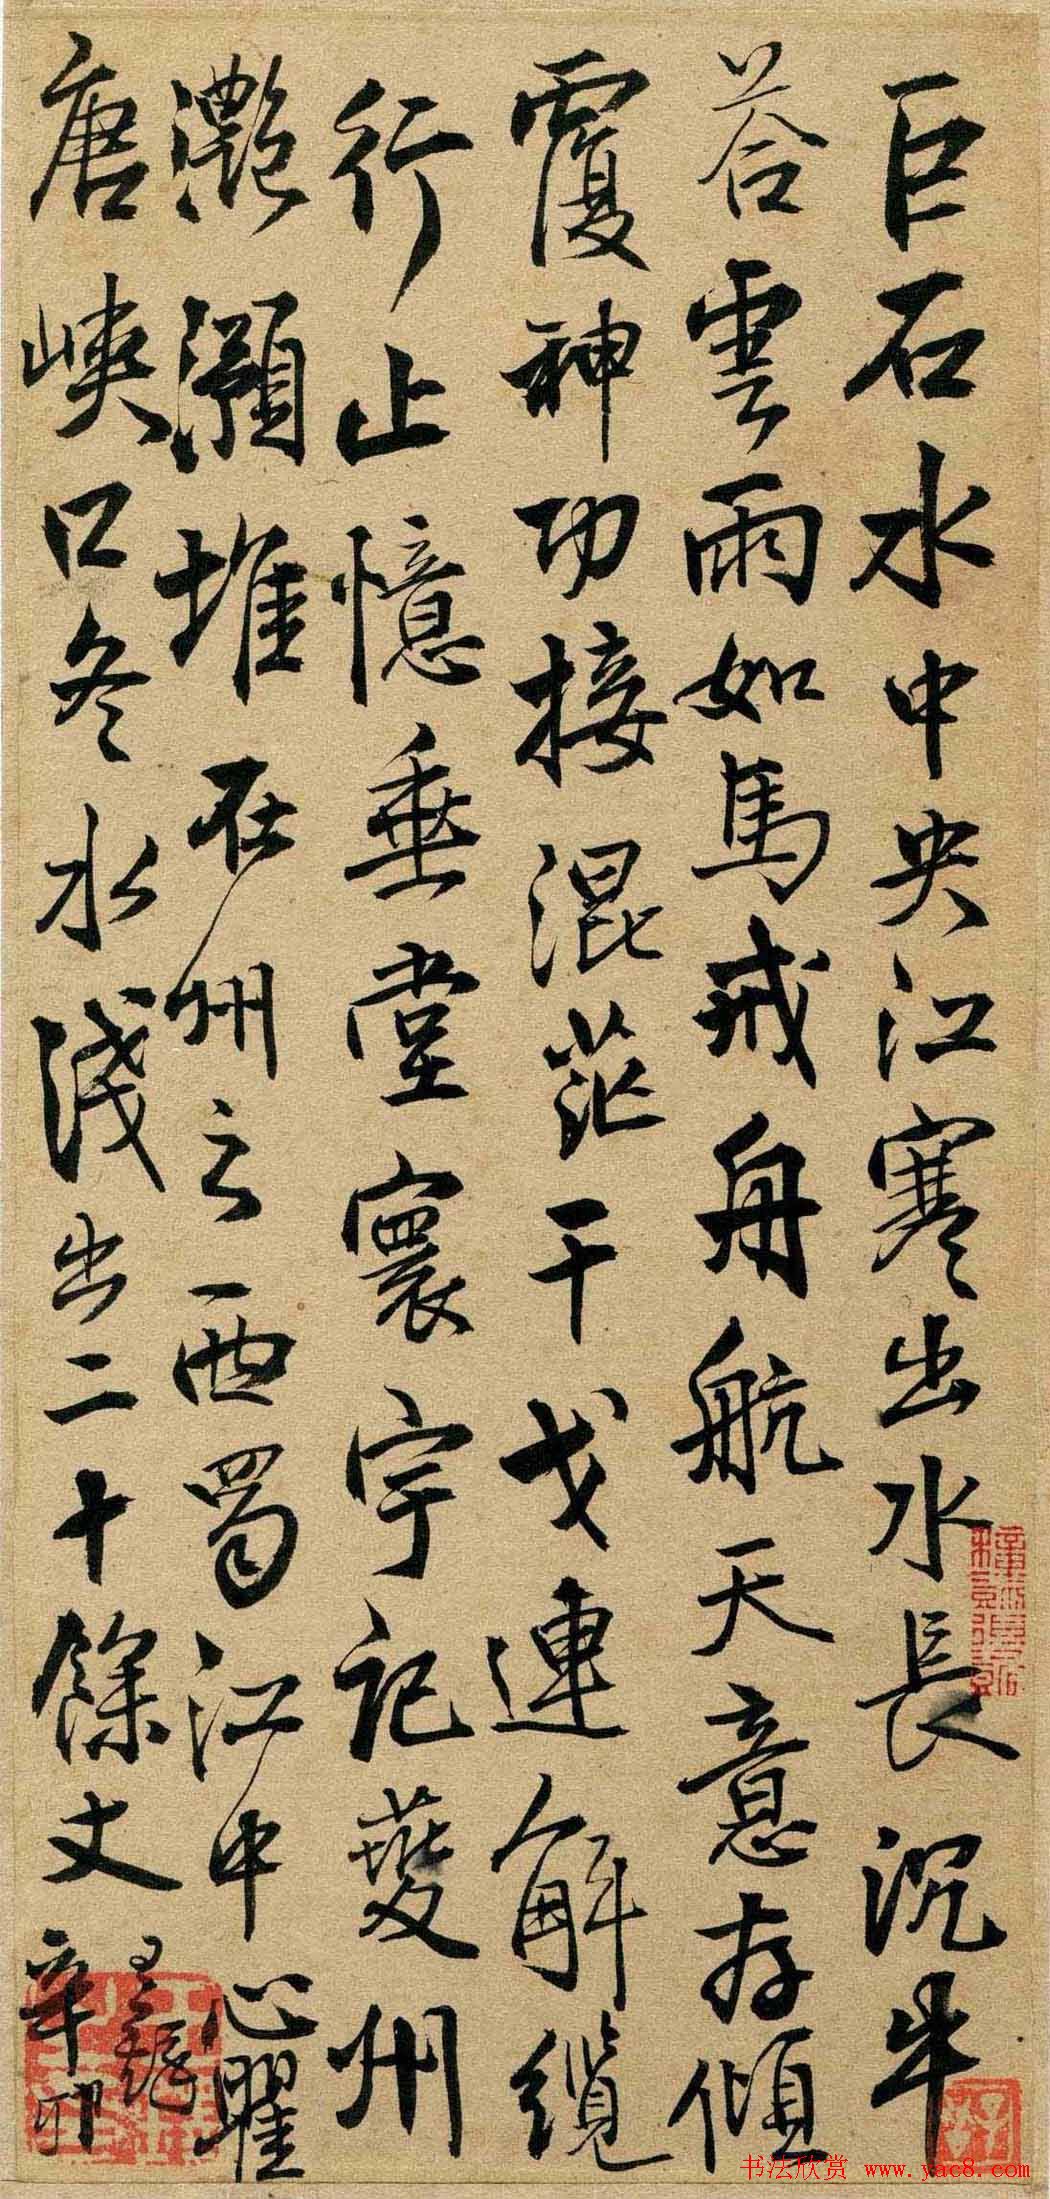 巨石水中央江寒出水長沉牛
荅雲雨如馬戒舟航天意存傾
覆神功接混茫干戈連解纜
行止憶垂堂寰宇記夔州
灔澦堆在州之西蜀江中心瞿
唐峽口冬水淺出二十餘丈
辛卯
书法欣赏 www.yac8.com